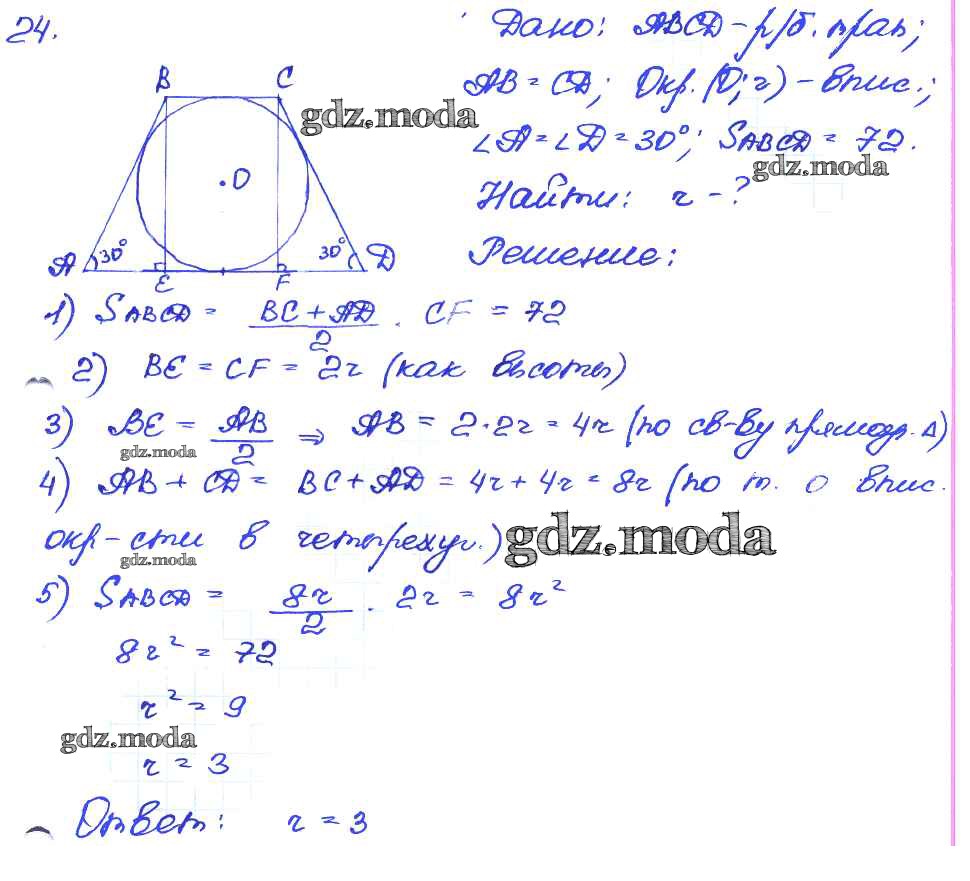 24.
Дано: ABCD - р/б. трап;
AB = CD; Окр. (O; r) - впис.;
∠A = ∠D = 30°; SABCD = 72.
Найти: r - ?
Решение:
B C
O
A 30° 30° D
E F
gdz.moda
gdz.moda
1) SABCD = (BC + AD)/2 · CF = 72
2) BE = CF = 2r (как высоты)
3) BE = AB/2 ⇒ AB = 2·2r = 4r (по св-ву прямоуг. Δ)
gdz.moda
4) AB + CD = BC + AD = 4r + 4r = 8r (по т. о впис.
окр-сти в четырехуг.)
gdz.moda
gdz.moda
5) SABCD = 8r/2 · 2r = 8r²
8r² = 72
r² = 9
gdz.moda
r = 3
Ответ: r = 3